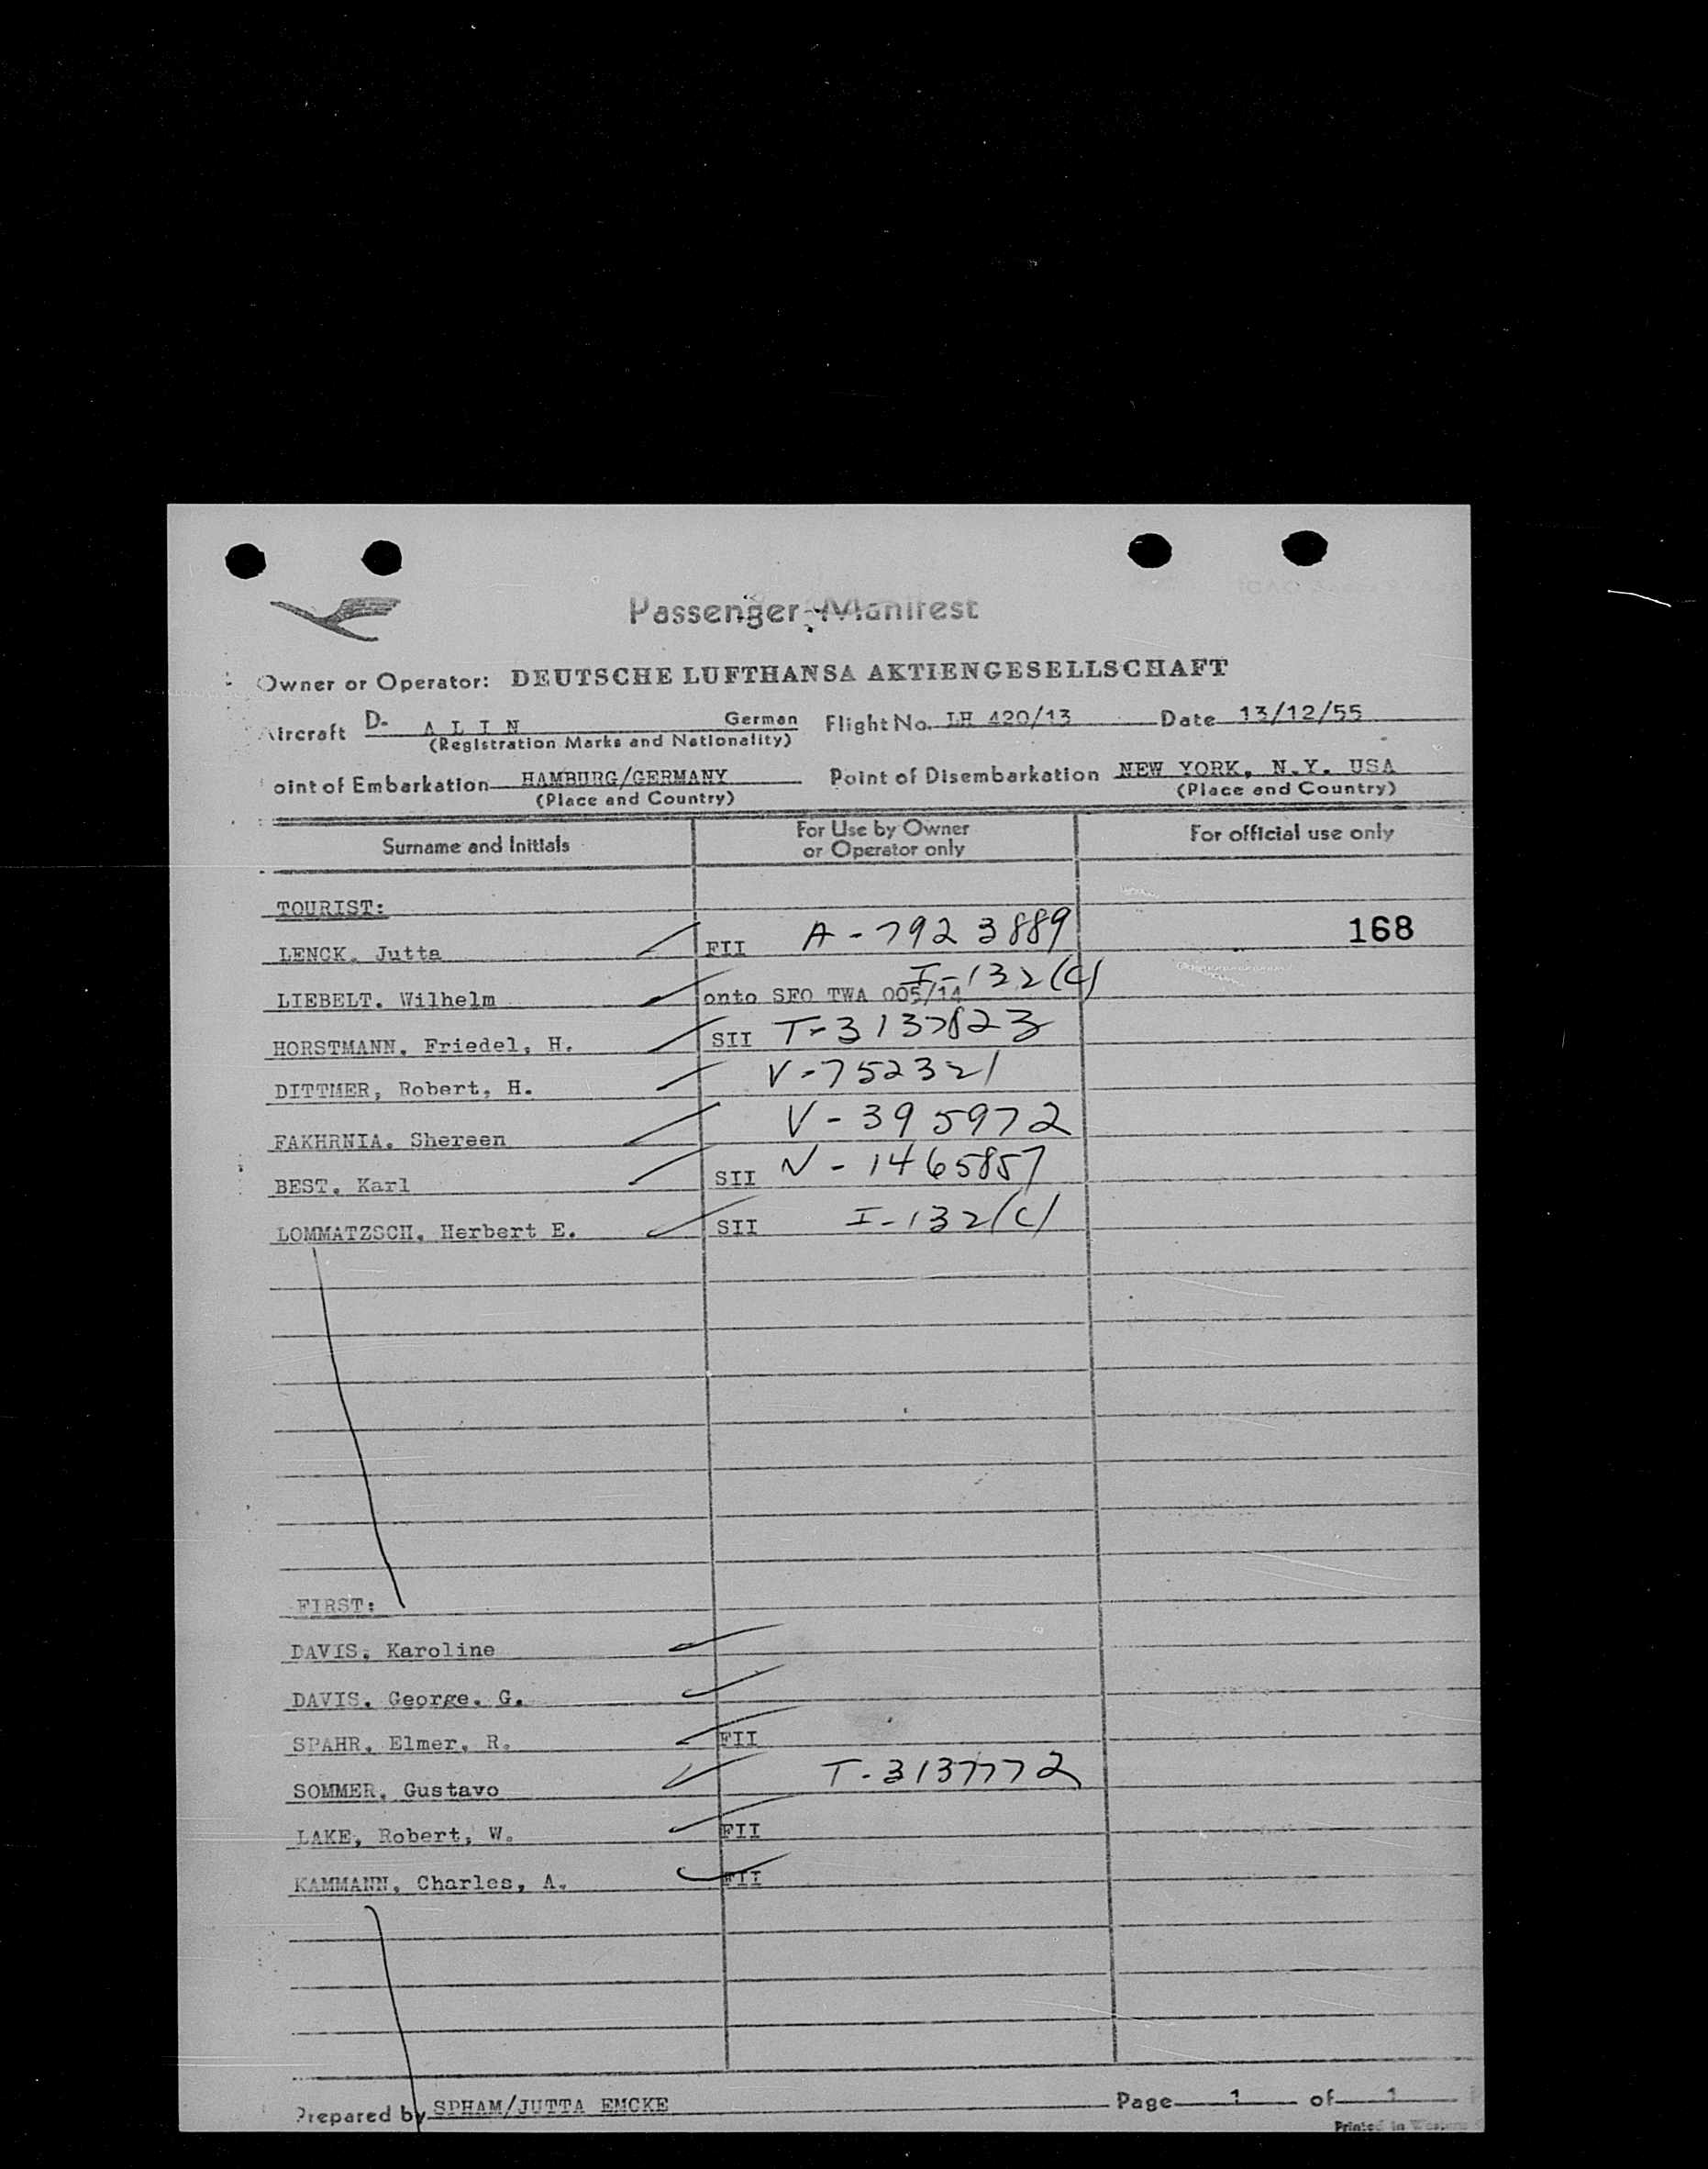 Passenger Manifest
Owner or Operator: DEUTSCHE LUFTHANSA AKTIENGESELLSCHAFT
Aircraft D- A L I N German Flight No. LH 420/13 Date 13/12/55
(Registration Marks and Nationality)
oint of Embarkation HAMBURG/GERMANY Point of Disembarkation NEW YORK, N.Y. USA
(Place and Country) (Place and Country)
Surname and Initials For Use by Owner or Operator only For official use only
TOURIST:
LENCK. Jutta FII A-7923889 168
LIEBELT. Wilhelm onto SFO TWA 005/14 I-132(C)
HORSTMANN. Friedel, H. SII T-3137823
DITTMER, Robert, H. V-752321
FAKHRNIA. Shereen V-395972
BEST. Karl SII N-1465857
LOMMATZSCH. Herbert E. SII I-132(C)
FIRST:
DAVIS. Karoline
DAVIS. George. G.
SPAHR. Elmer. R. FII
SOMMER. Gustavo T-3137772
LAKE, Robert, W. FII
KAMMANN. Charles, A. FII
Prepared by SPHAM/JUTTA EMCKE Page 1 of 1
Printed in